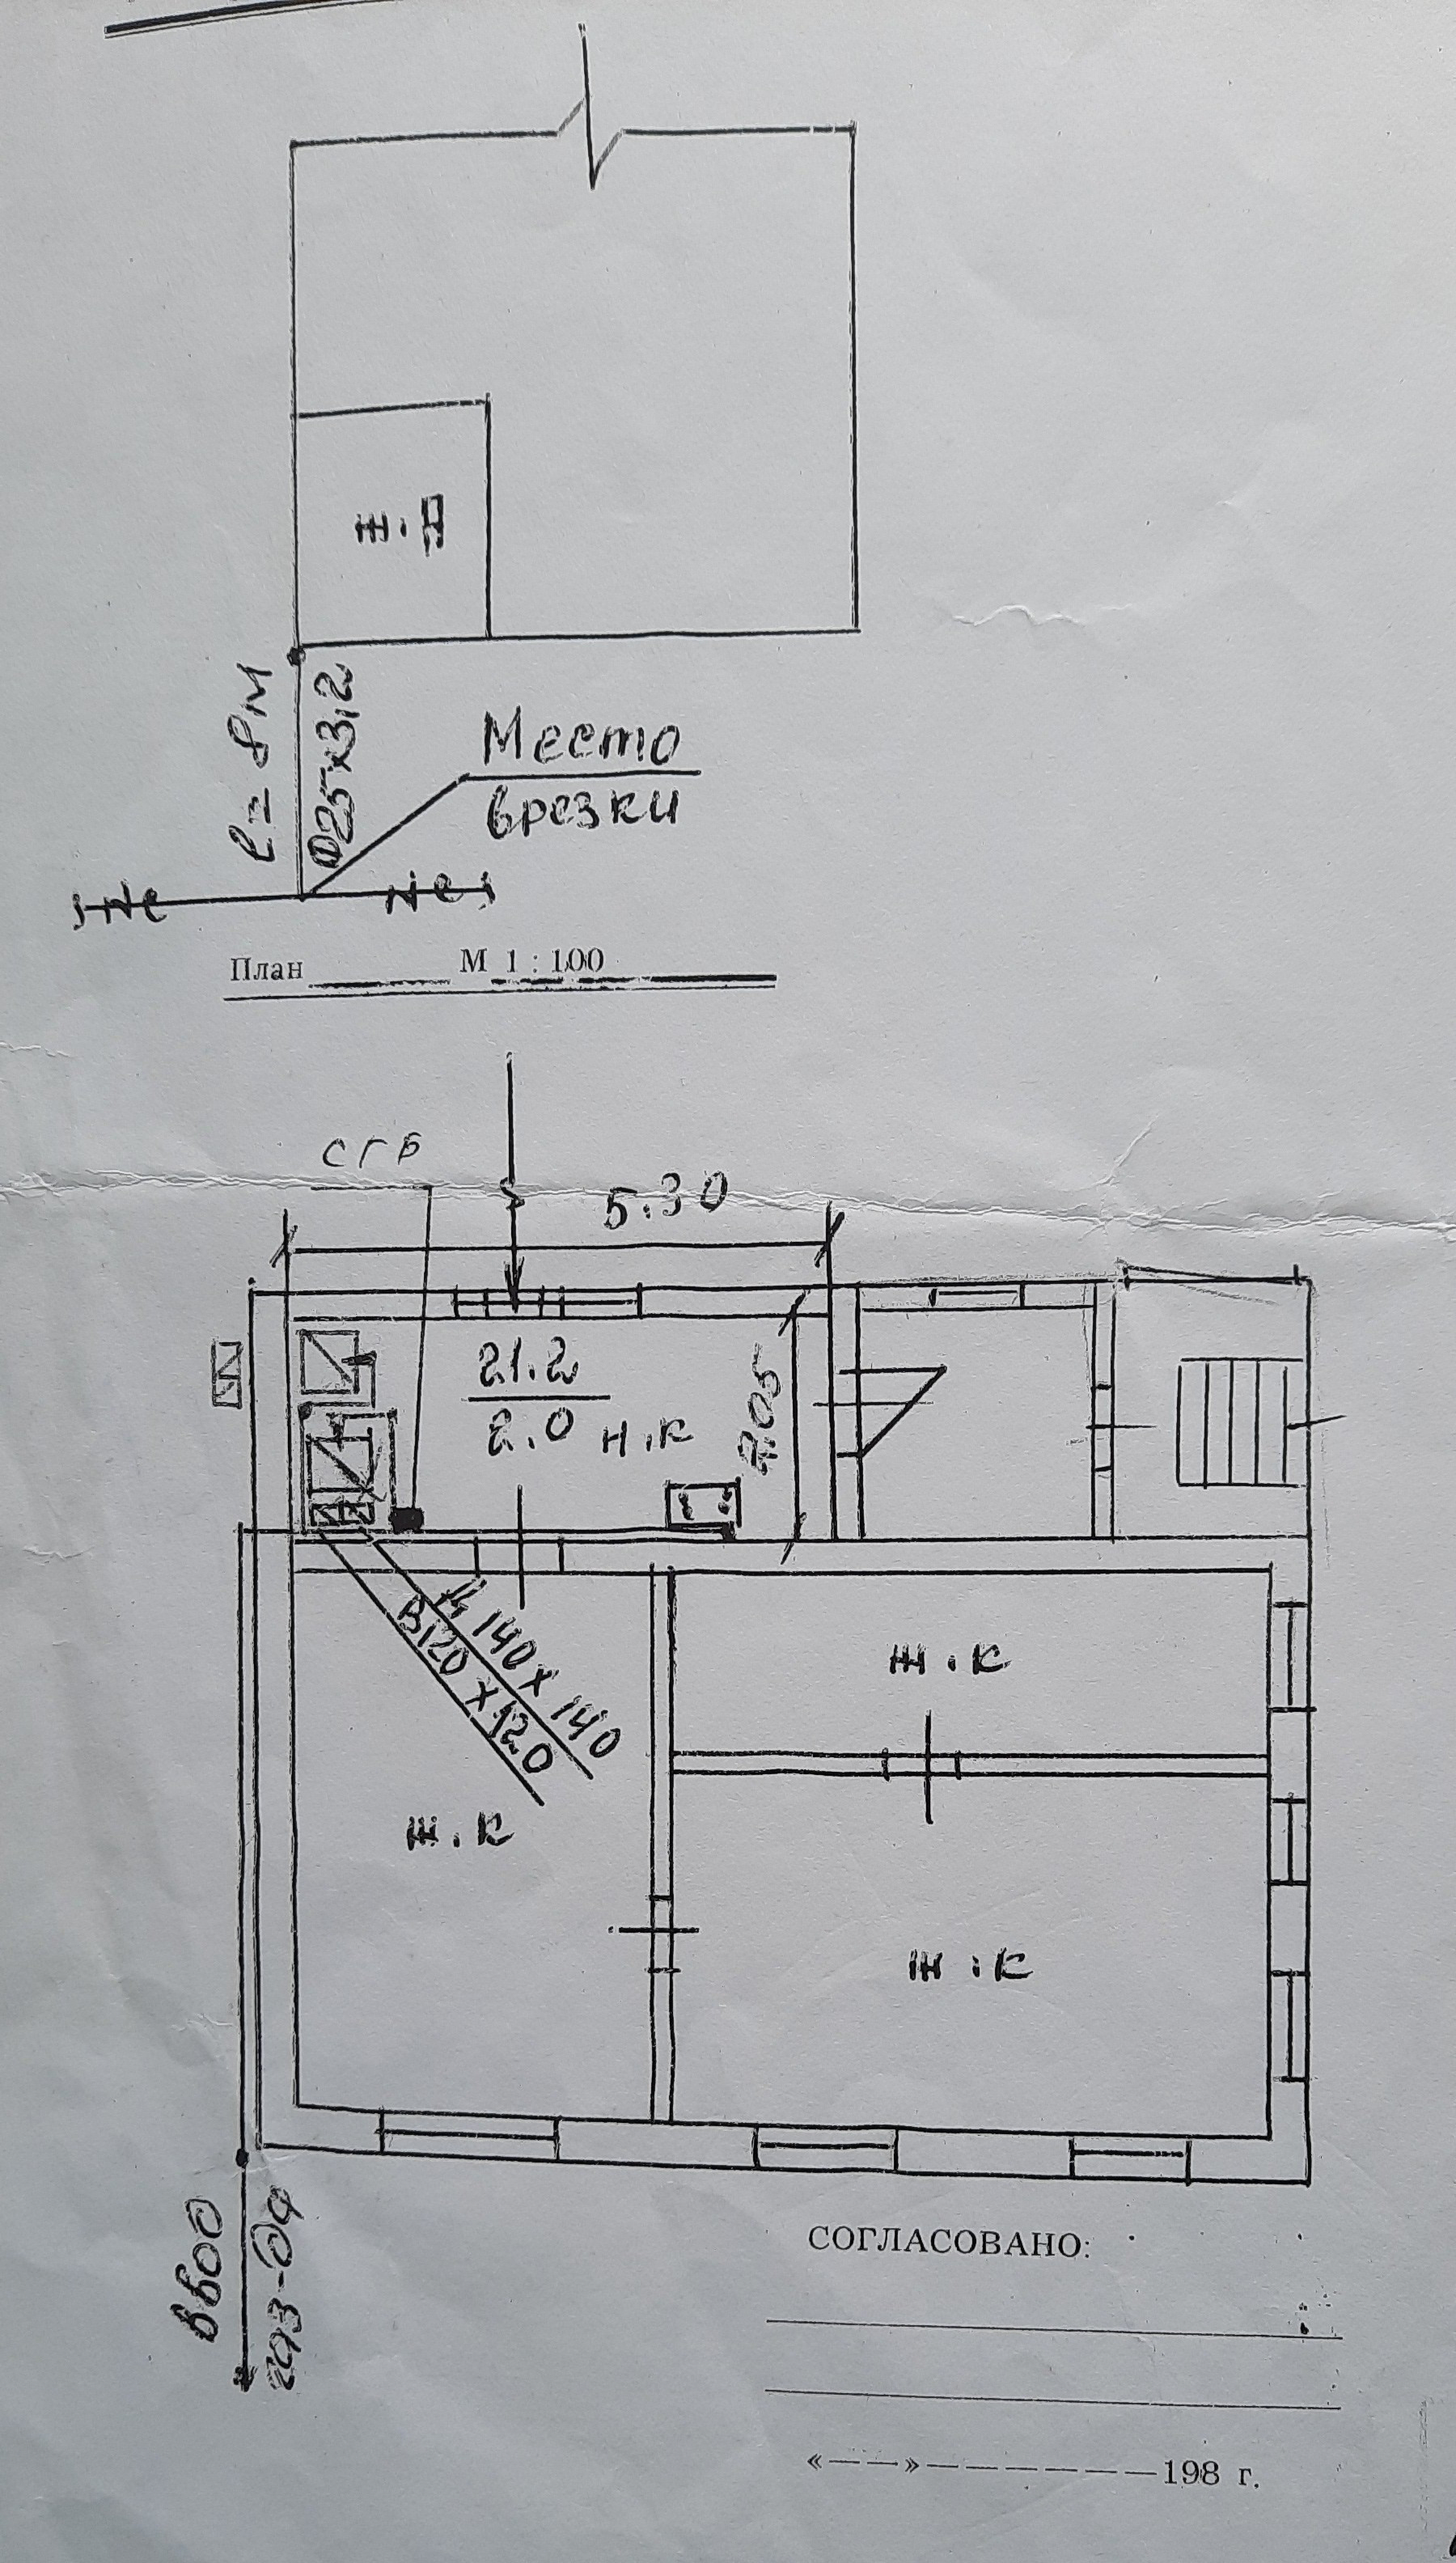 ж.д
l = 8м
Ф25х3,2
Место
врезки
План М 1 : 100
СГБ
5.30
21.2
2.0
н.к
Д 140 х 140
В120 х 120
ж.к
ж.к
ж.к
ввод
газ-да
СОГЛАСОВАНО:
«——»——————198 г.